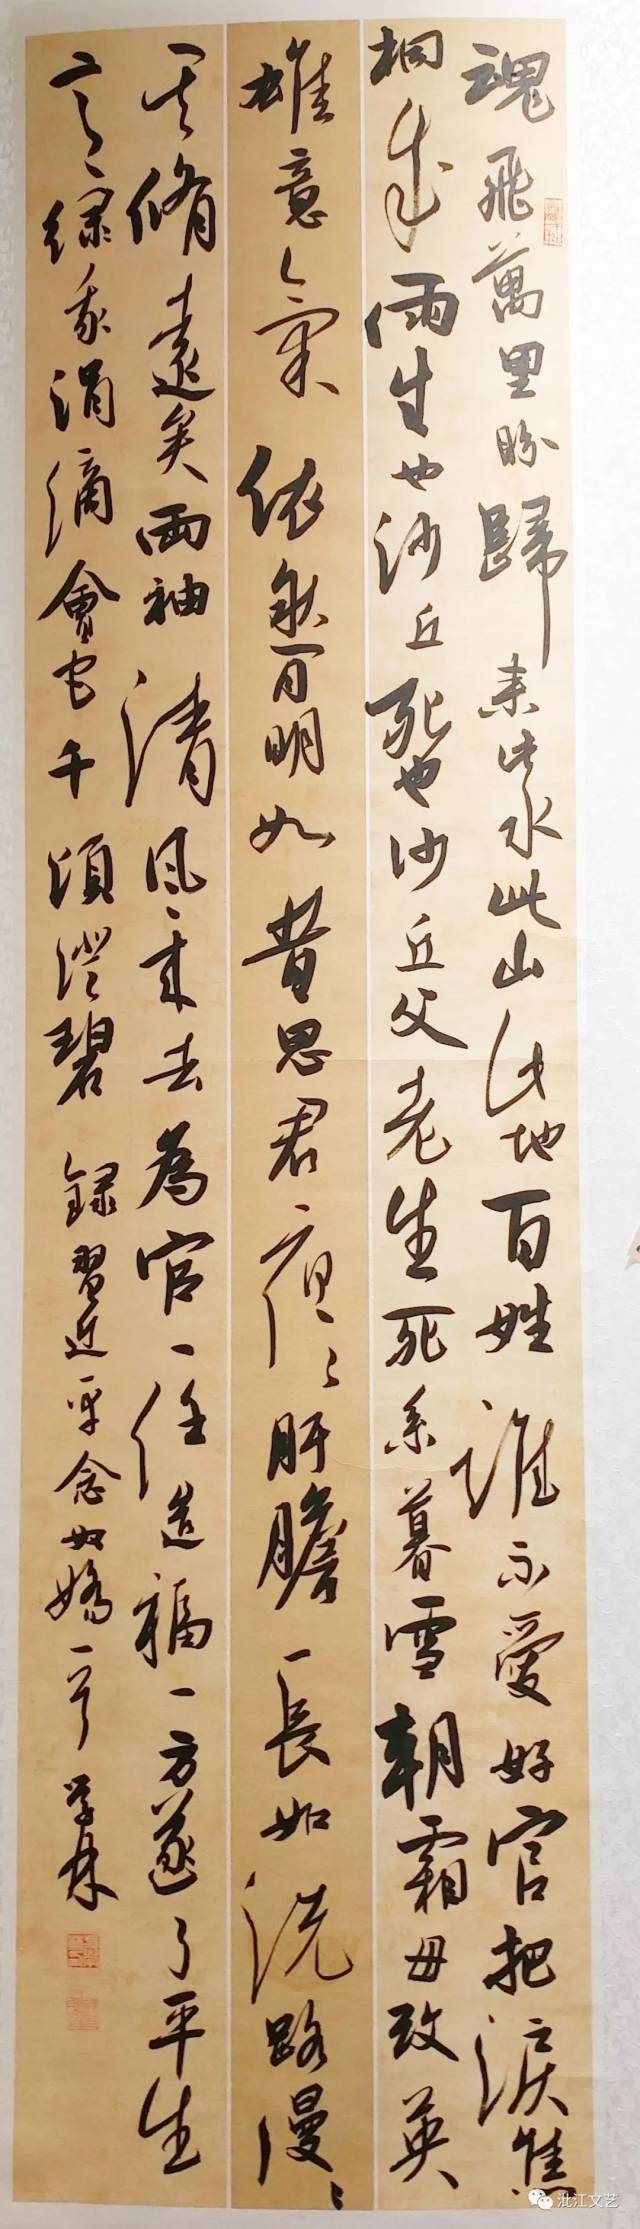 魂飛萬里盼歸來此水此山此地百姓誰不愛好官把淚焦
桐成雨生也沙丘死也沙丘父老生死系暮雪朝霜毋改英
雄意氣依然月明如昔思君夜〻肝膽長如洗路漫〻
其脩遠矣兩袖清風來去為官一任造福一方遂了平生
意綠我涓滴會它千頃澄碧 錄習近平念奴嬌一首
沘江文艺